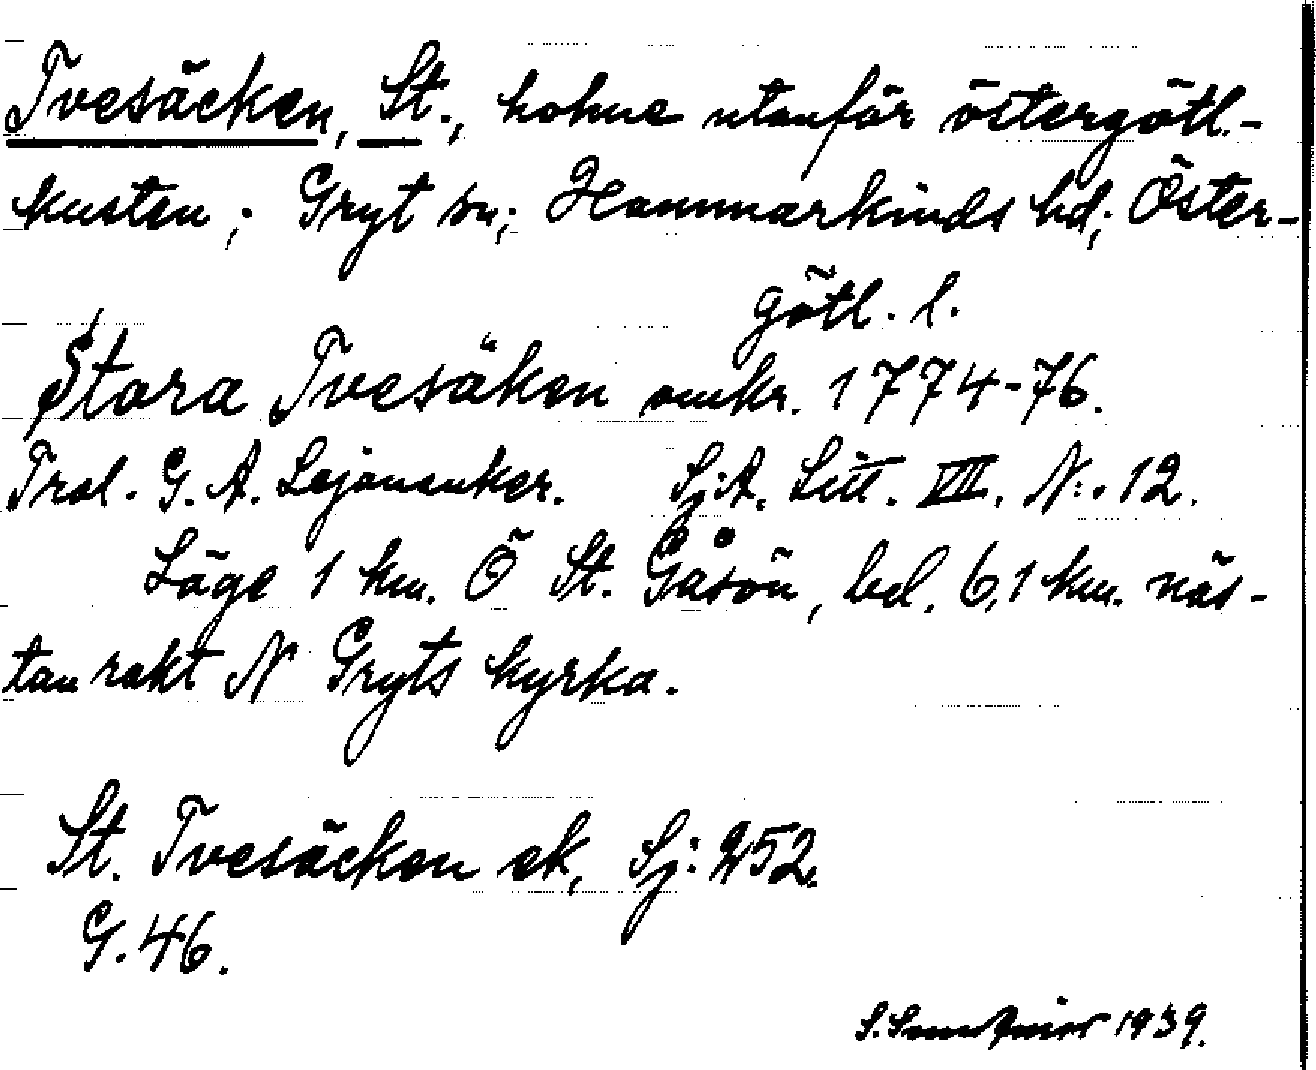 Tvesäcken, St., holme utanför östergötl.-
kusten; Gryt sn; Hammarkinds hd; Öster-
götl. l.
Stora Tvesäken omkr. 1774-76.
Trol. G. A. Lejonanker. Sj:A. Litt. VII. N:. 12.
Läge 1 km. Ö St. Gåsön, bel. 6,1 km. näs-
tan rakt N Gryts kyrka.
St. Tvesäcken ek, Sj: 252.
G. 46.
S. 1939.